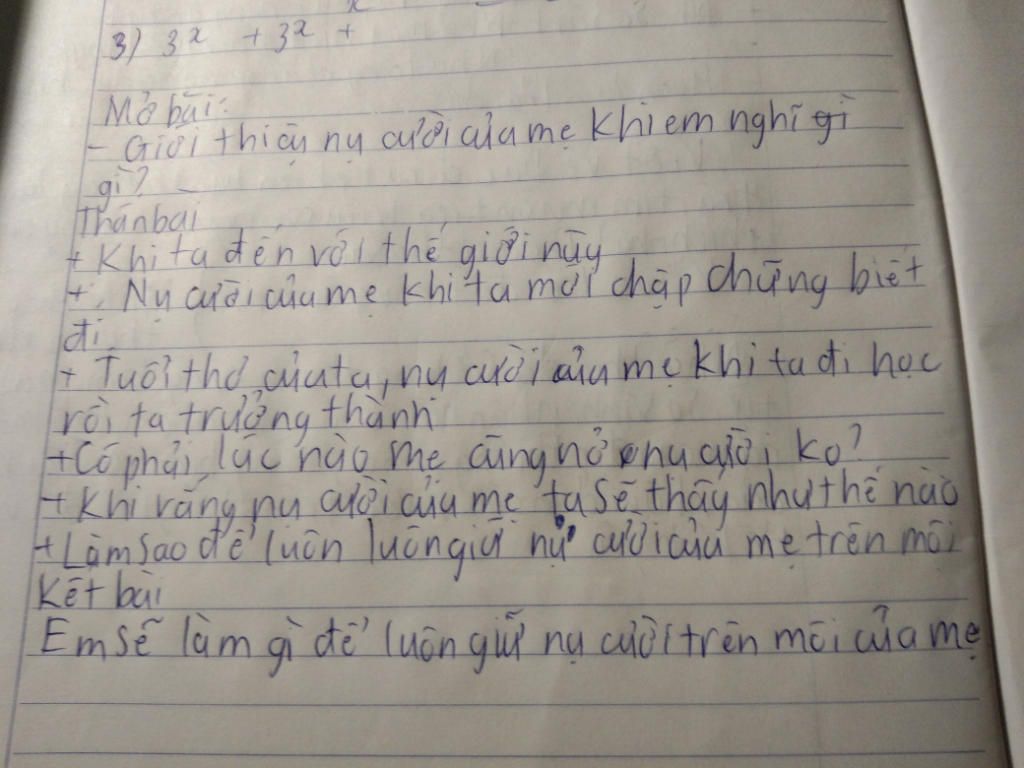 3) 3x + 3x +
x
Mở bài:
- Giới thiệu nụ cười của mẹ khi em nghĩ gì
gì?
Thân bài
+ Khi ta đến với thế giới này
+ Nụ cười của mẹ khi ta mới chập chững biết
đi.
+ Tuổi thơ của ta, nụ cười của mẹ khi ta đi học
rồi ta trưởng thành
+ Có phải lúc nào mẹ cũng nở nụ cười ko?
+ Khi vắng nụ cười của mẹ ta sẽ thấy như thế nào
+ Làm sao để luôn luôn giữ nụ cười của mẹ trên môi
Kết bài
Em sẽ làm gì để luôn giữ nụ cười trên môi của mẹ